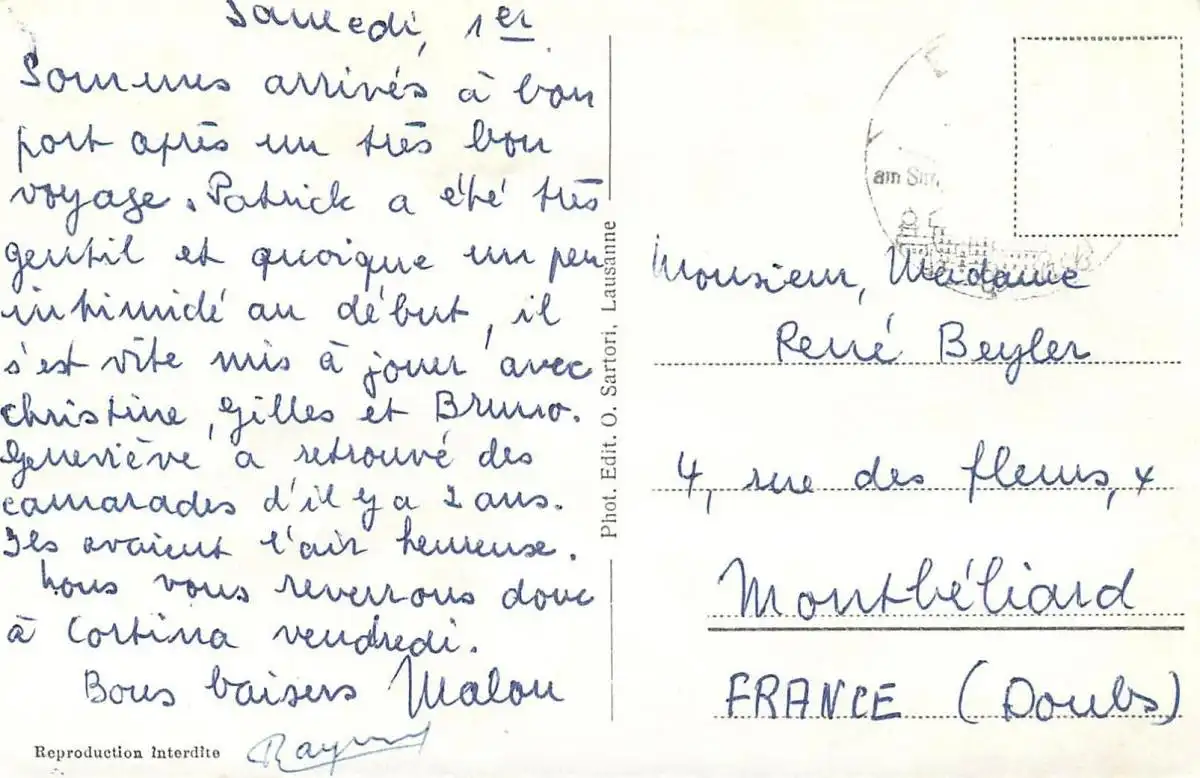 Samedi, 1er
Sommes arrivés à bon
port après un très bon
voyage. Patrick a été très
gentil et quoique un peu
intimidé au début, il
s'est vite mis à jouer avec
christine, Gilles et Bruno.
Geneviève a retrouvé des
camarades d'il y a 2 ans.
Ils avaient l'air heureuse.
Nous vous reverrons donc
à Cortina vendredi.
Bons baisers Malou
Reproduction interdite
Phot. Edit. O. Sartori, Lausanne
am
Monsieur, Madame
René Beyler
4, rue des fleurs,
Montbéliard
FRANCE (Doubs)